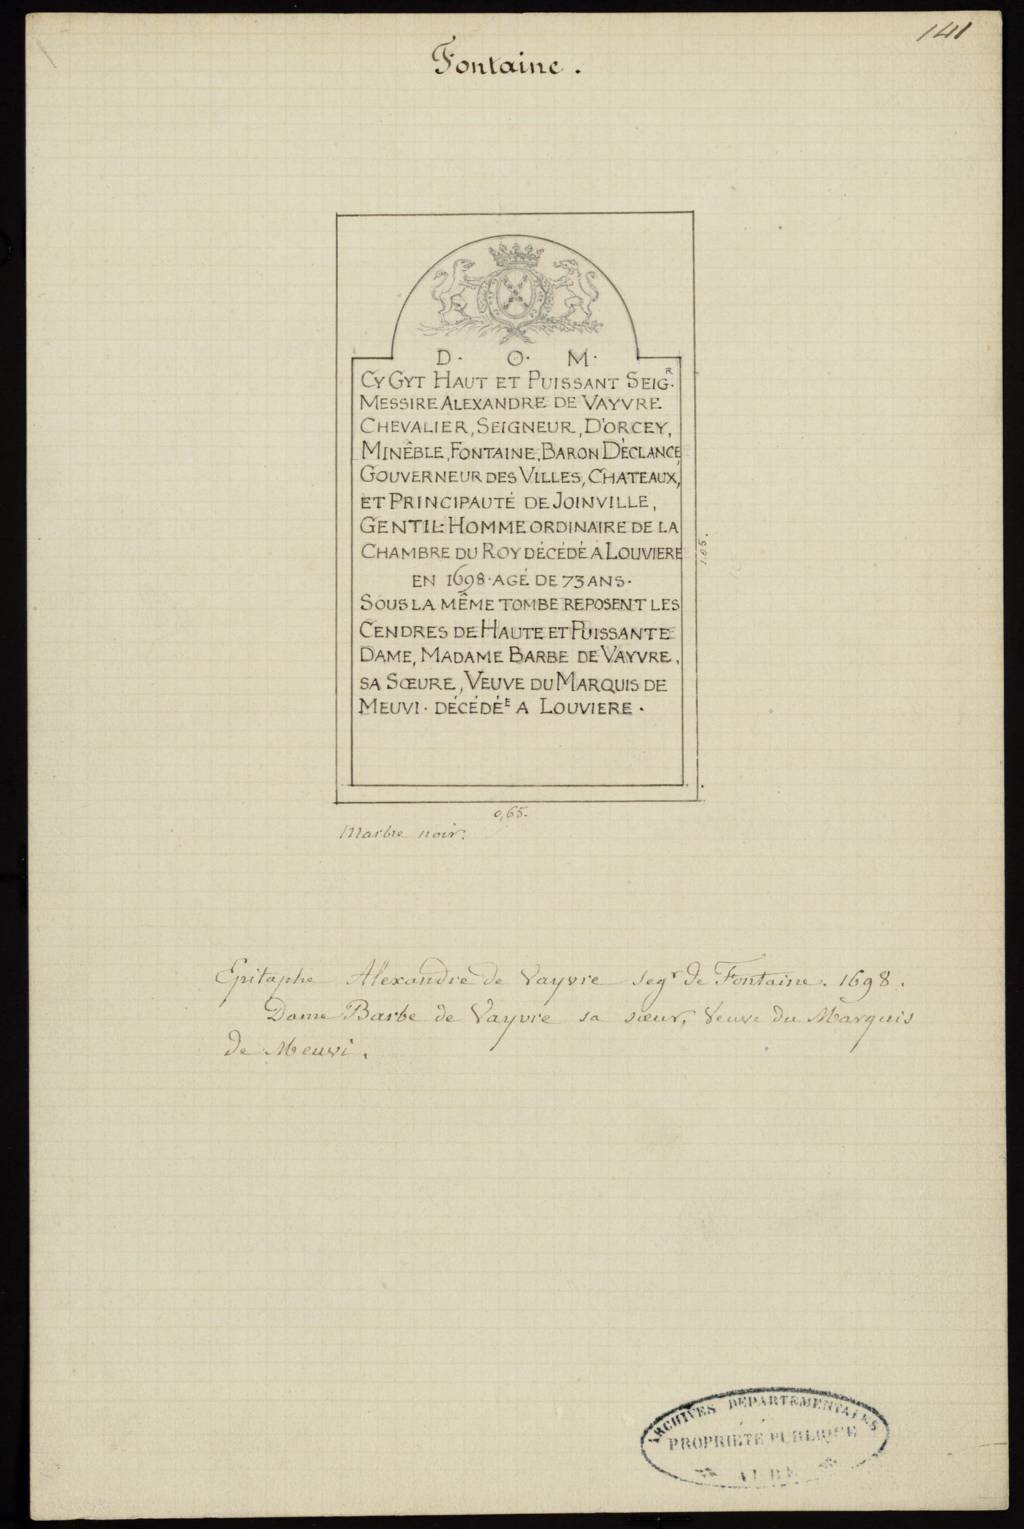 141
Fontaine.
D. O. M.
CY GYT HAUT ET PUISSANT SEIG.R
MESSIRE ALEXANDRE DE VAYVRE
CHEVALIER, SEIGNEUR, D'ORCEY,
MINÊBLE, FONTAINE, BARON D'ÉCLANCE,
GOUVERNEUR DES VILLES, CHATEAUX,
ET PRINCIPAUTÉ DE JOINVILLE,
GENTIL-HOMME ORDINAIRE DE LA
CHAMBRE DU ROY DÉCÉDÉ À LOUVIERE
EN 1698. AGÉ DE 73 ANS.
SOUS LA MÊME TOMBE REPOSENT LES
CENDRES DE HAUTE ET PUISSANTE
DAME, MADAME BARBE DE VAYVRE,
SA SŒURE, VEUVE DU MARQUIS DE
MEUVI. DÉCÉDÉE A LOUVIERE.
1.05.
0,65.
Marbre noir.
Epitaphe Alexandre de Vayvre segr de Fontaine. 1698.
Dame Barbe de Vayvre sa sœur, Veuve du Marquis
de Meuvi.
ARCHIVES DÉPARTEMENTALES
PROPRIÉTÉ PUBLIQUE
AUBE